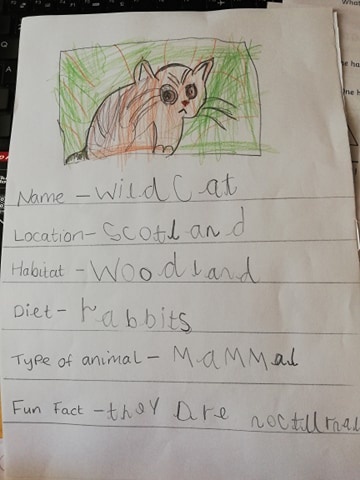 Name - Wild Cat
Location - Scotland
Habitat - Woodland
Diet - rabbits
Type of animal - Mammal
Fun Fact - they are nocturnal